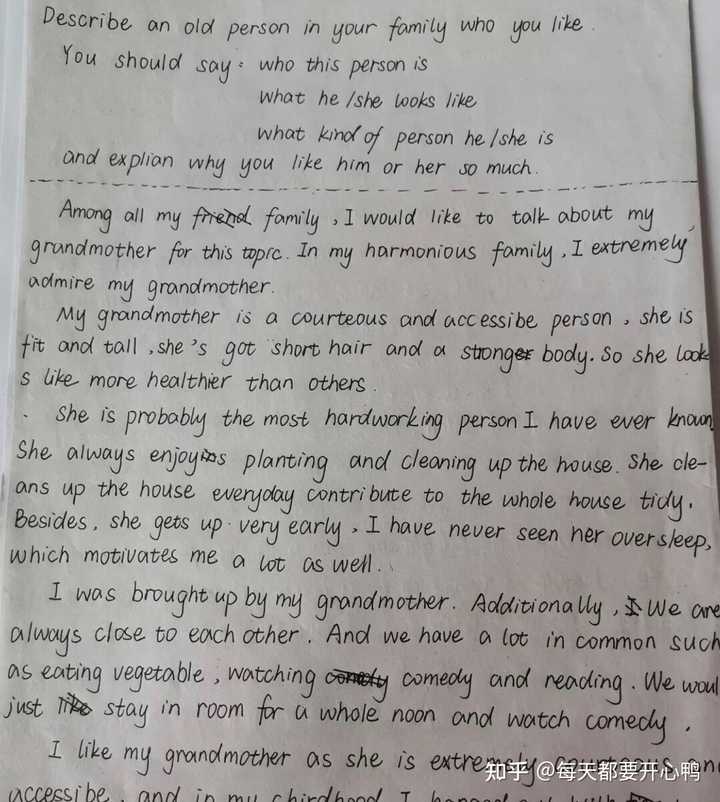 Describe an old person in your family who you like.
You should say: who this person is
what he/she looks like
what kind of person he/she is
and explian why you like him or her so much.
Among all my friend family, I would like to talk about my
grandmother for this topic. In my harmonious family, I extremely
admire my grandmother.
My grandmother is a courteous and accessibe person, she is
fit and tall, she's got short hair and a stronger body. So she look
s like more healthier than others.
She is probably the most hardworking person I have ever known
She always enjoys planting and cleaning up the house. She cle-
ans up the house everyday contribute to the whole house tidy.
Besides, she gets up very early, I have never seen her oversleep,
which motivates me a lot as well.
I was brought up by my grandmother. Additionally, We are
always close to each other. And we have a lot in common such
as eating vegetable, watching comedy comedy and reading. We woul
just like stay in room for a whole noon and watch comedy.
I like my grandmother as she is extremely courteous an
accessibe, and in my chirdhood I
知乎 @每天都要开心鸭